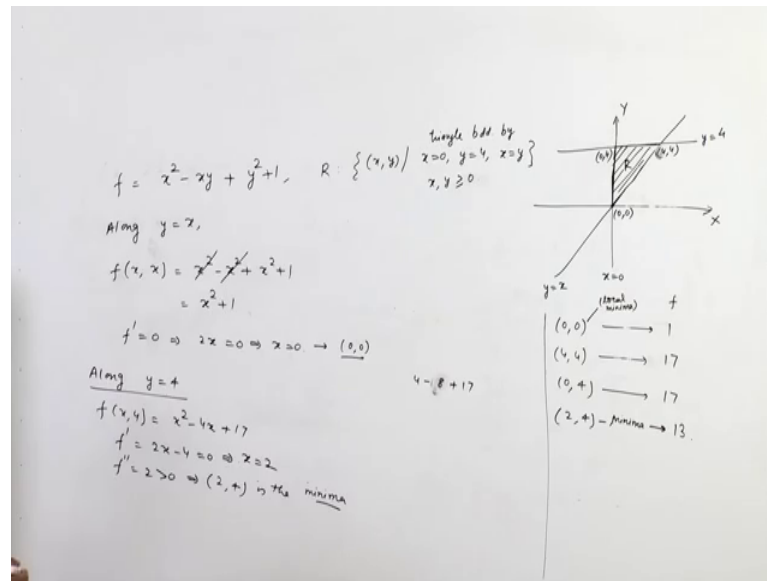 f = x² - xy + y² + 1, R : {(x,y) / triangle bdd by x=0, y=4, x=y}
x, y ≥ 0
Along y = x,
f(x, x) = x² - x² + x² + 1
= x² + 1
f' = 0 ⇒ 2x = 0 ⇒ x = 0 → (0,0)
Along y = 4
f(x,4) = x² - 4x + 17
f' = 2x - 4 = 0 ⇒ x = 2
f'' = 2 > 0 ⇒ (2,4) is the minima
4 - 8 + 17
Y
y = 4
(0,4)
(4,4)
R
(0,0)
X
x = 0
y = x
(local minima) f
(0,0) → 1
(4,4) → 17
(0,4) → 17
(2,4) - minima → 13